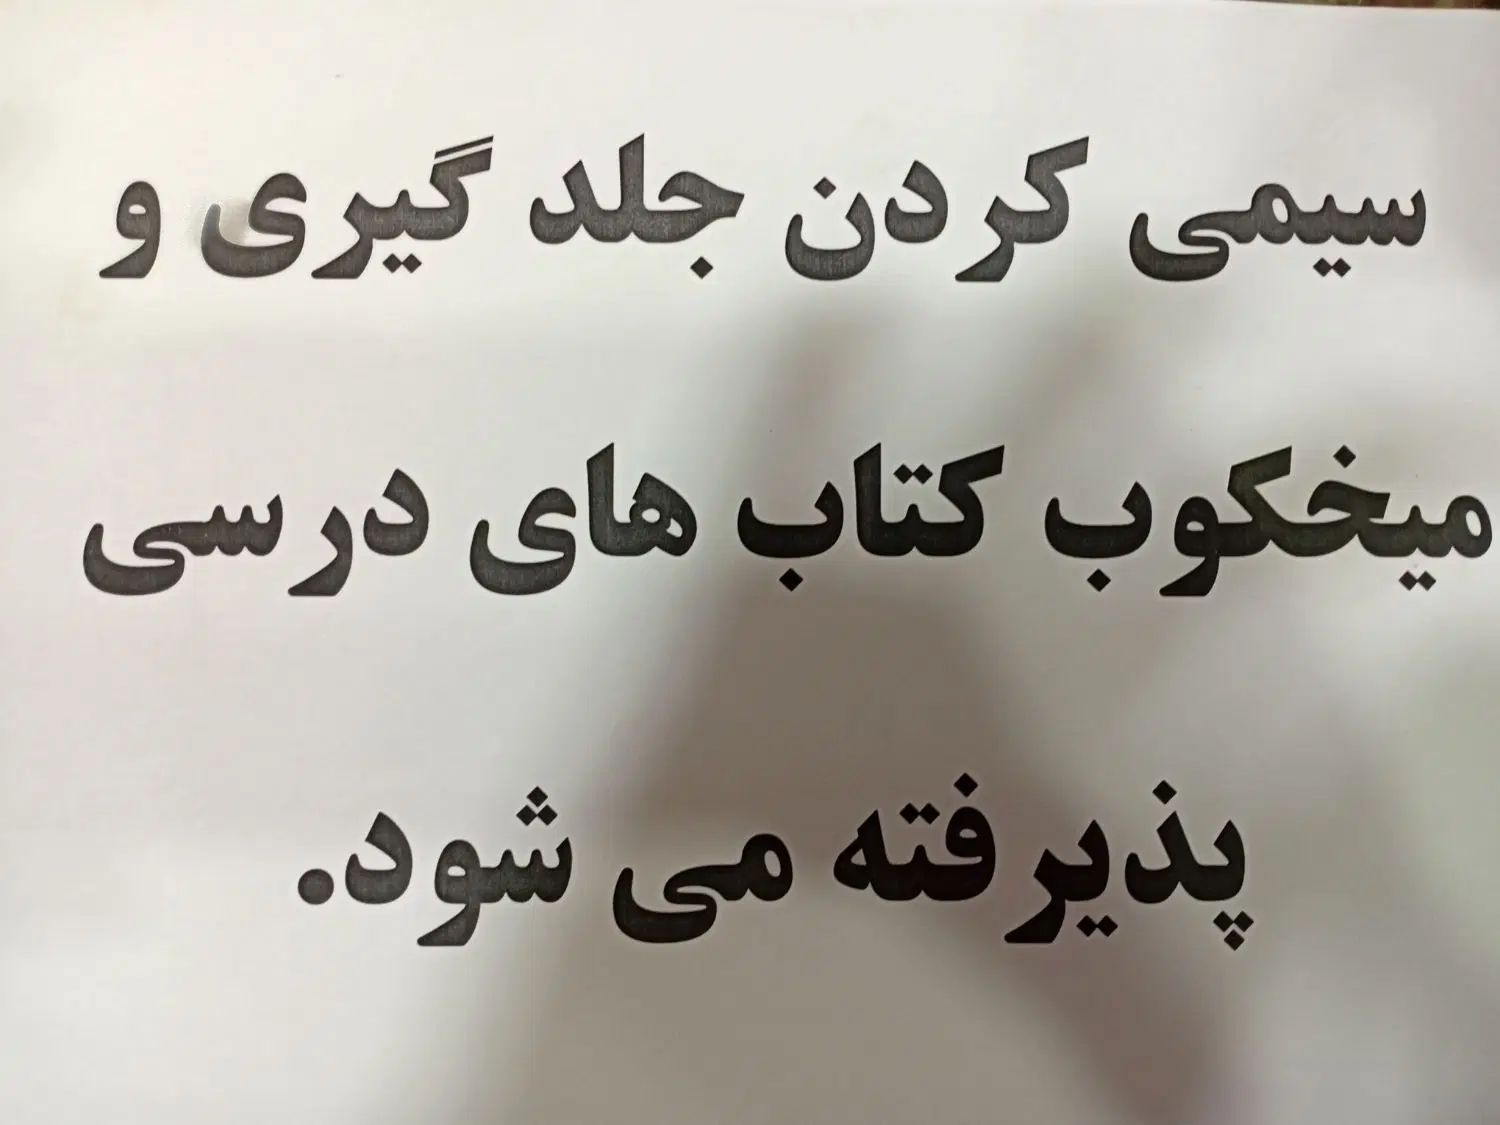 سیمی کردن جلد گیری و
میخکوب کتاب های درسی
پذیرفته می شود.